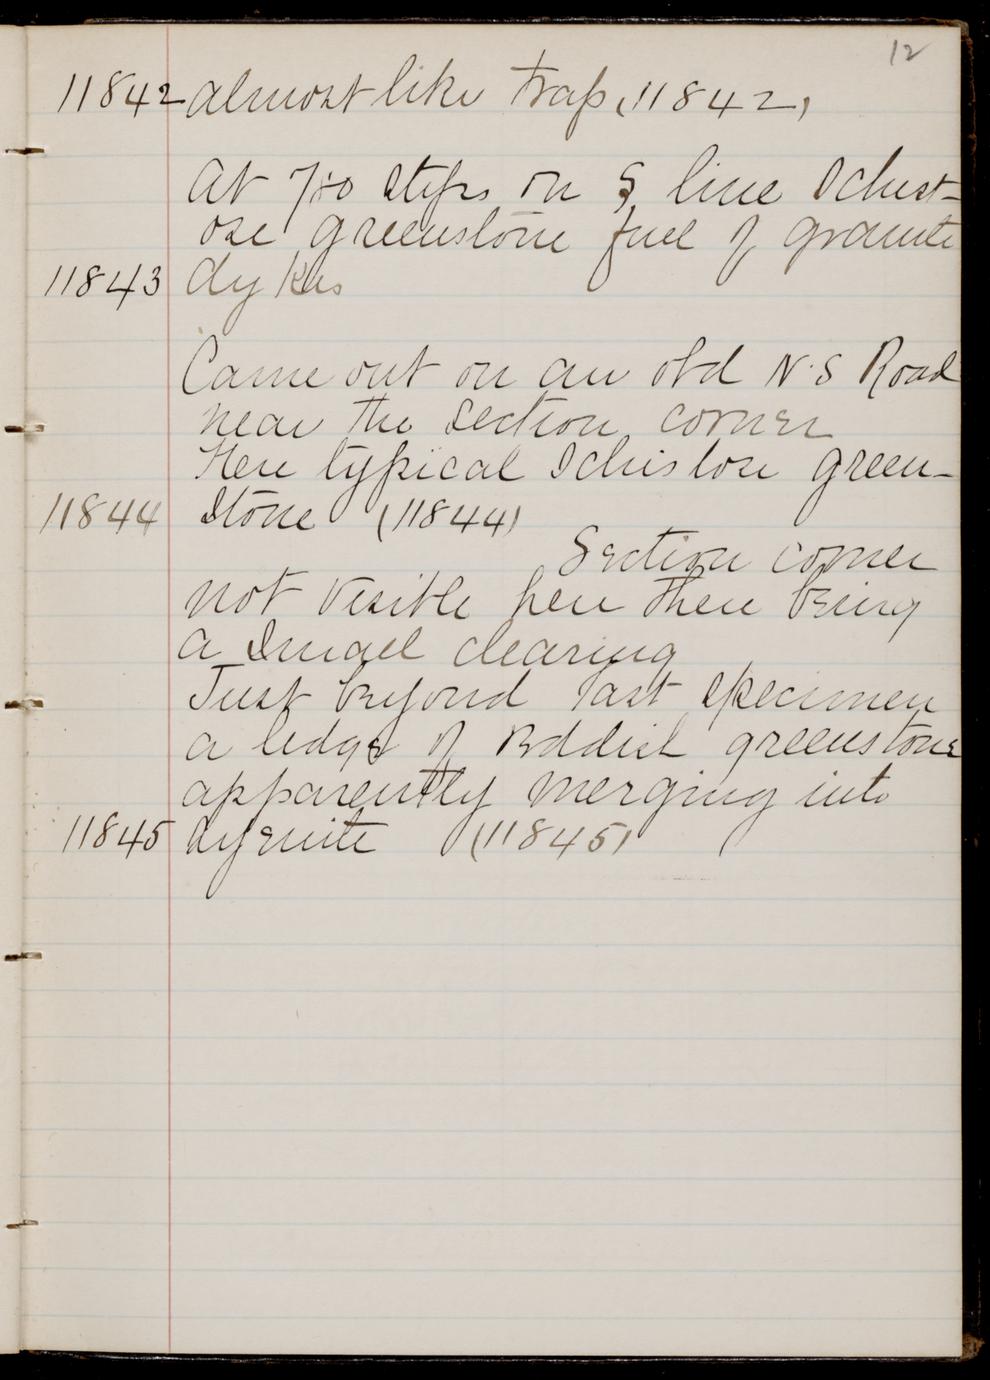 12
11842 almost like trap (11842)
At 700 steps on S line Schist-
ose greenstone full of granite
11843 dykes
Came out on an old N.S Road
near the section corner
Here typical Schistose green-
11844 stone (11844)
Section corner
not visible here there being
a small clearing
Just beyond last specimen
a ledge of Reddish greenstone
apparently merging into
11845 syenite (11845)